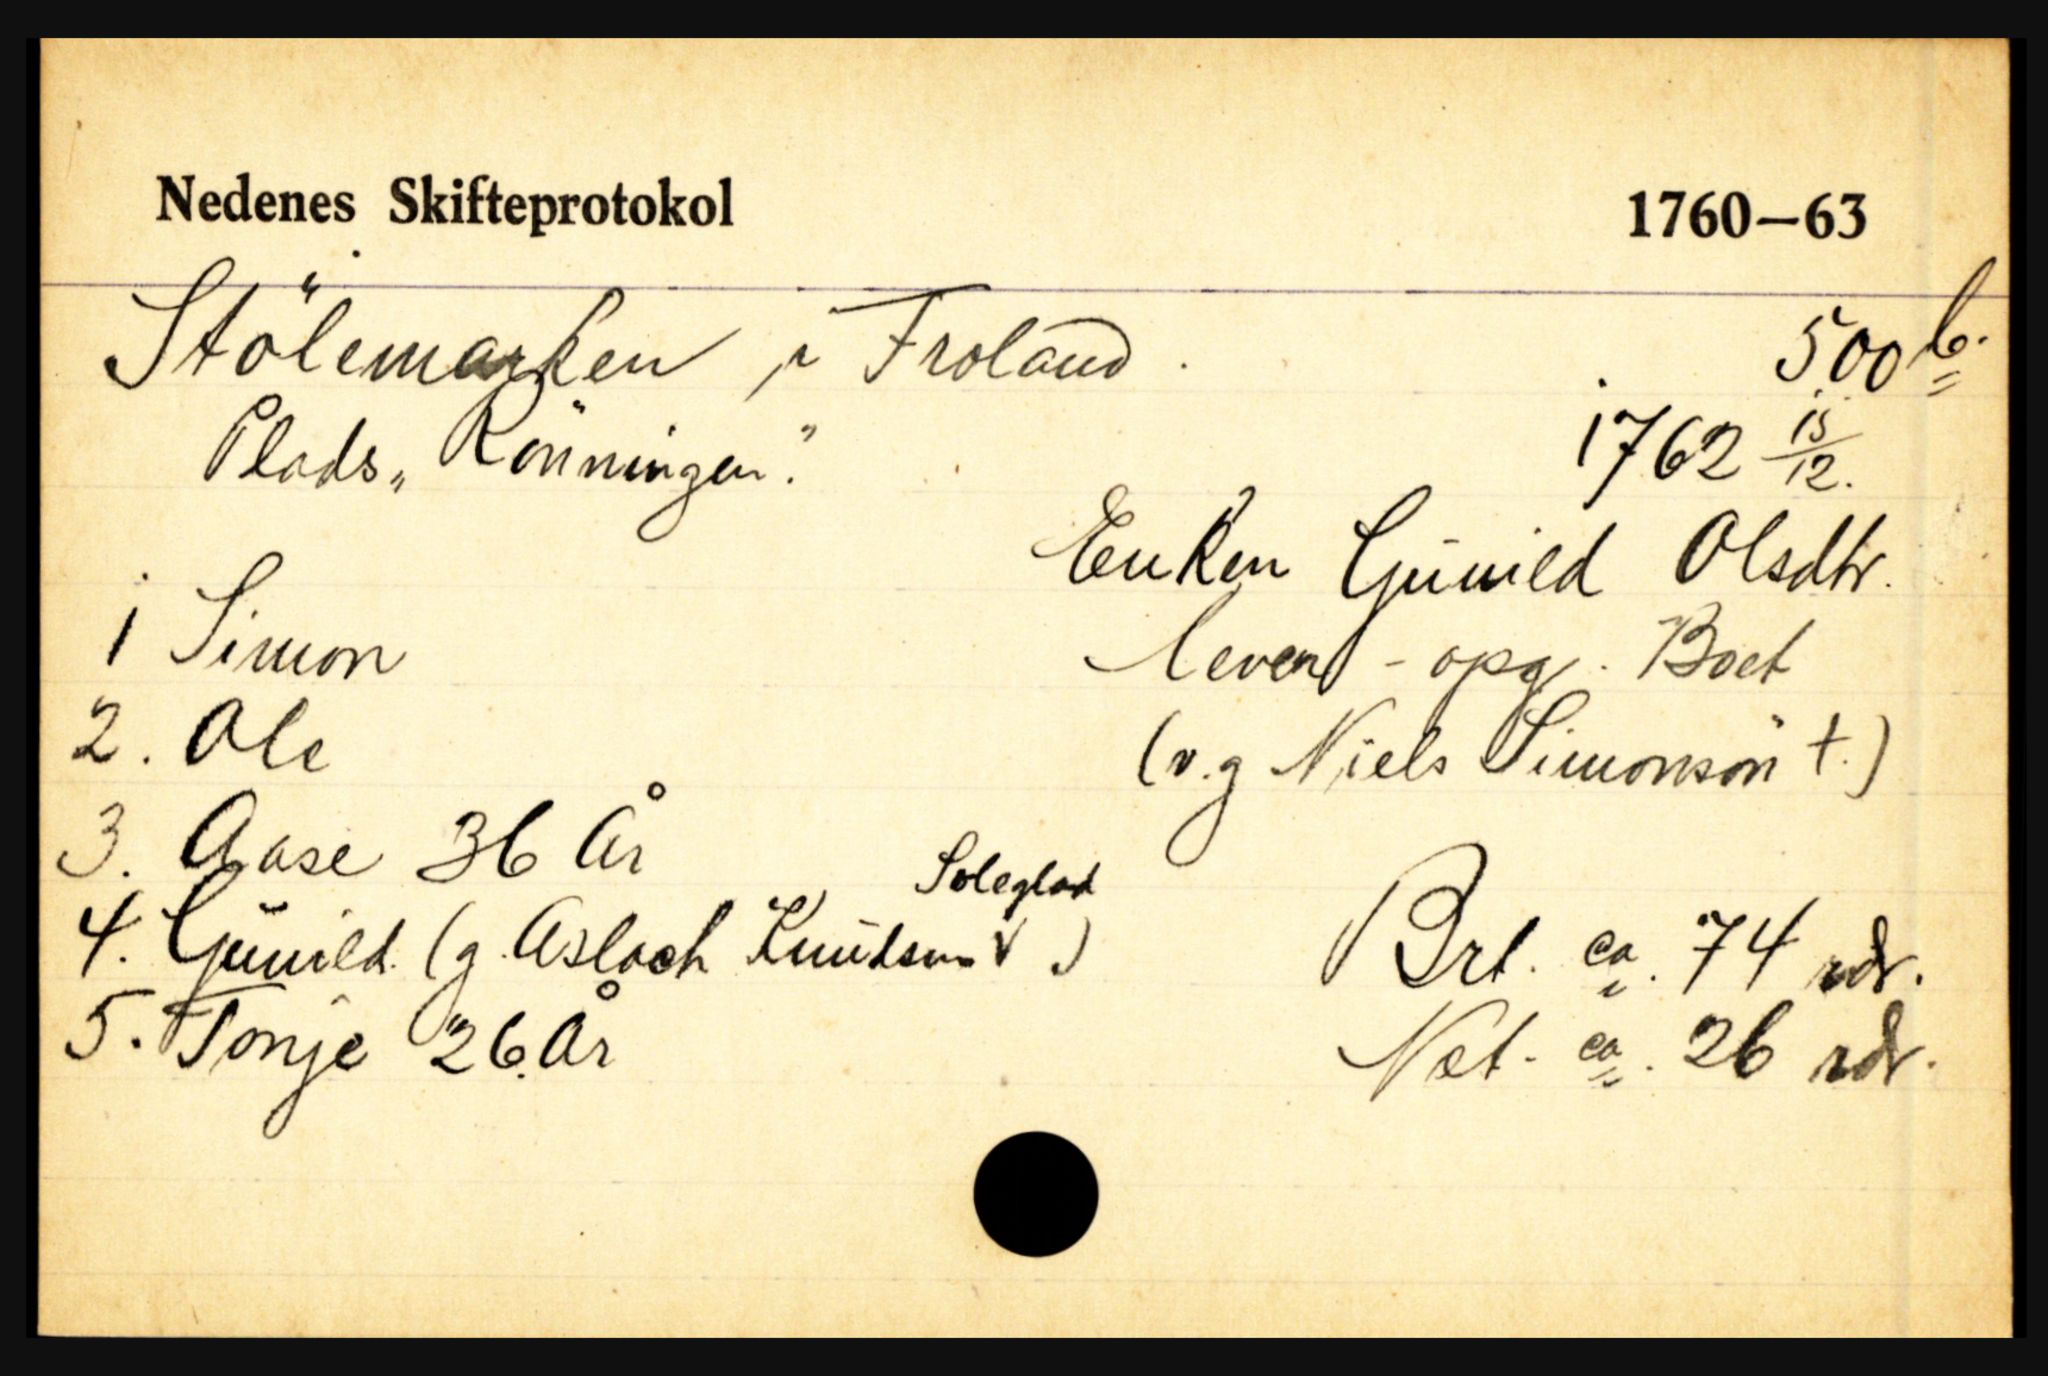 Nedenes Skifteprotokol 1760—63
Stölemarken i Froland. 500 b.
Plads „Rönningen." 1762 15/12.
Enken Gunild Olsdtr.
lever - opg. Boet
(v.g Niels Simonsön †.)
1 Simon
2. Ole
3. Aase 36 År
4. Gunild. (g. Aslach Knudsen Soleglad)
5. Tonje 26 År
Brt. ca. 74 rdr.
Net. ca. 26 rdr.